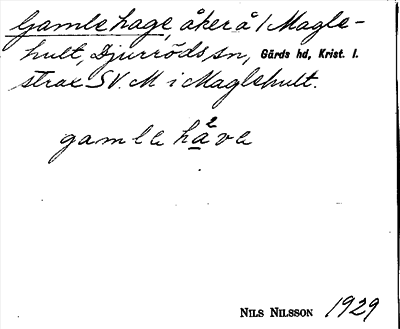 Gamle hage, åker å 1 Magle-
hult, Djurröds sn, Gärds hd, Krist. l.
strax SV. M i Maglehult.
gamle have
NILS NILSSON 1929